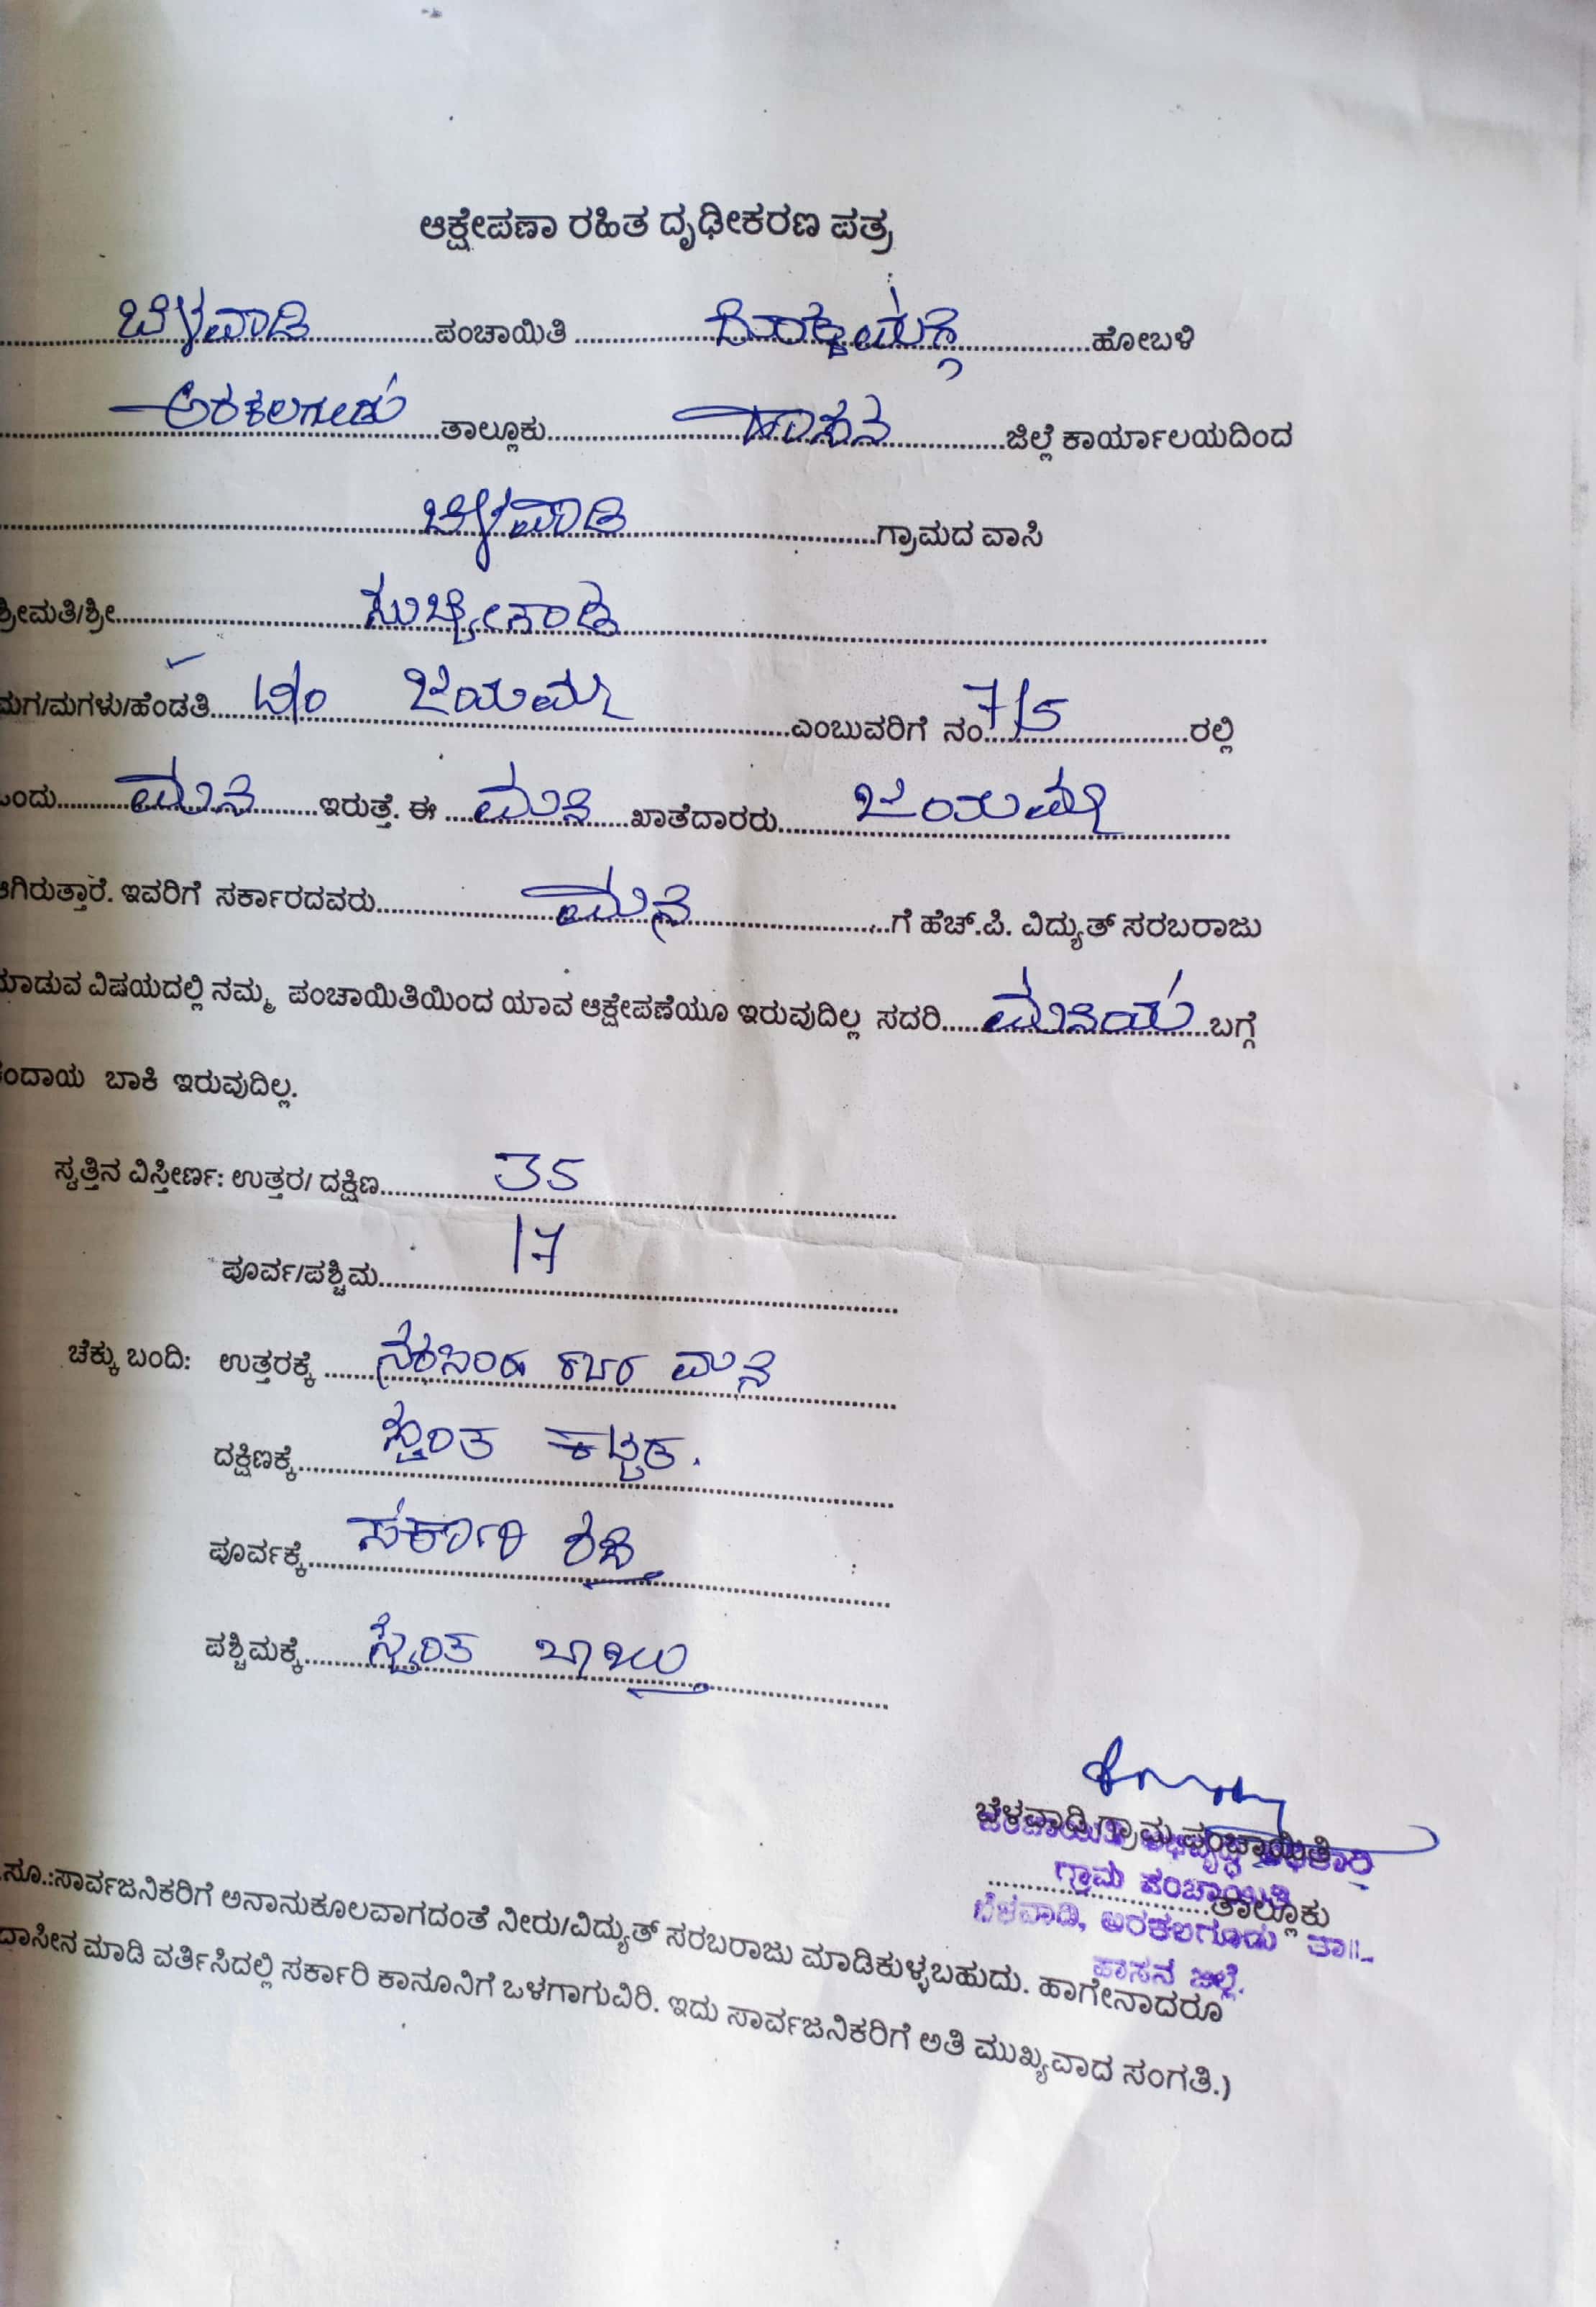 ಆಕ್ಷೇಪಣಾ ರಹಿತ ದೃಢೀಕರಣ ಪತ್ರ
ಬೆಳವಾಡಿ ಪಂಚಾಯಿತಿ ಹೋಬಳಿ
ಅರಕಲಗೂಡು ತಾಲ್ಲೂಕು ಹಾಸನ ಜಿಲ್ಲೆ ಕಾರ್ಯಾಲಯದಿಂದ
ಬೆಳವಾಡಿ ಗ್ರಾಮದ ವಾಸಿ
ಶ್ರೀಮತಿ/ಶ್ರೀ
ಮಗ/ಮಗಳು/ಹೆಂಡತಿ ಜಯಮ್ಮ ಎಂಬುವರಿಗೆ ನಂ. 7/5 ರಲ್ಲಿ
ಒಂದು ಮನೆ ಇರುತ್ತೆ. ಈ ಮನೆ ಖಾತೆದಾರರು ಜಯಮ್ಮ
ಆಗಿರುತ್ತಾರೆ. ಇವರಿಗೆ ಸರ್ಕಾರದವರು ಮನೆ ಗೆ ಹೆಚ್.ಪಿ. ವಿದ್ಯುತ್ ಸರಬರಾಜು
ಮಾಡುವ ವಿಷಯದಲ್ಲಿ ನಮ್ಮ ಪಂಚಾಯಿತಿಯಿಂದ ಯಾವ ಆಕ್ಷೇಪಣೆಯೂ ಇರುವುದಿಲ್ಲ ಸದರಿ ಮನೆಯ ಬಗ್ಗೆ
ಕಂದಾಯ ಬಾಕಿ ಇರುವುದಿಲ್ಲ.
ಸ್ವತ್ತಿನ ವಿಸ್ತೀರ್ಣ: ಉತ್ತರ/ ದಕ್ಷಿಣ 35
ಪೂರ್ವ/ಪಶ್ಚಿಮ 17
ಚೆಕ್ಕು ಬಂದಿ: ಉತ್ತರಕ್ಕೆ ರವರ ಮನೆ
ದಕ್ಷಿಣಕ್ಕೆ ಸ್ವಂತ ಕಟ್ಟಡ.
ಪೂರ್ವಕ್ಕೆ ಸರ್ಕಾರಿ ರಸ್ತೆ
ಪಶ್ಚಿಮಕ್ಕೆ ಸ್ವಂತ ಬಾಬ್ತು
ಬೆಳವಾಡಿ ಗ್ರಾಮ ಪಂಚಾಯಿತಿ
ಪಂಚಾಯಿತಿ ಅಭಿವೃದ್ಧಿ ಅಧಿಕಾರಿ
ಗ್ರಾಮ ಪಂಚಾಯಿತಿ
ತಾಲ್ಲೂಕು
ಬೆಳವಾಡಿ, ಅರಕಲಗೂಡು ತಾ||.
ಹಾಸನ ಜಿಲ್ಲೆ.
ಸೂ.:ಸಾರ್ವಜನಿಕರಿಗೆ ಅನಾನುಕೂಲವಾಗದಂತೆ ನೀರು/ವಿದ್ಯುತ್ ಸರಬರಾಜು ಮಾಡಿಕುಳ್ಳಬಹುದು. ಹಾಗೇನಾದರೂ
ದಾಸೀನ ಮಾಡಿ ವರ್ತಿಸಿದಲ್ಲಿ ಸರ್ಕಾರಿ ಕಾನೂನಿಗೆ ಒಳಗಾಗುವಿರಿ. ಇದು ಸಾರ್ವಜನಿಕರಿಗೆ ಅತಿ ಮುಖ್ಯವಾದ ಸಂಗತಿ.)